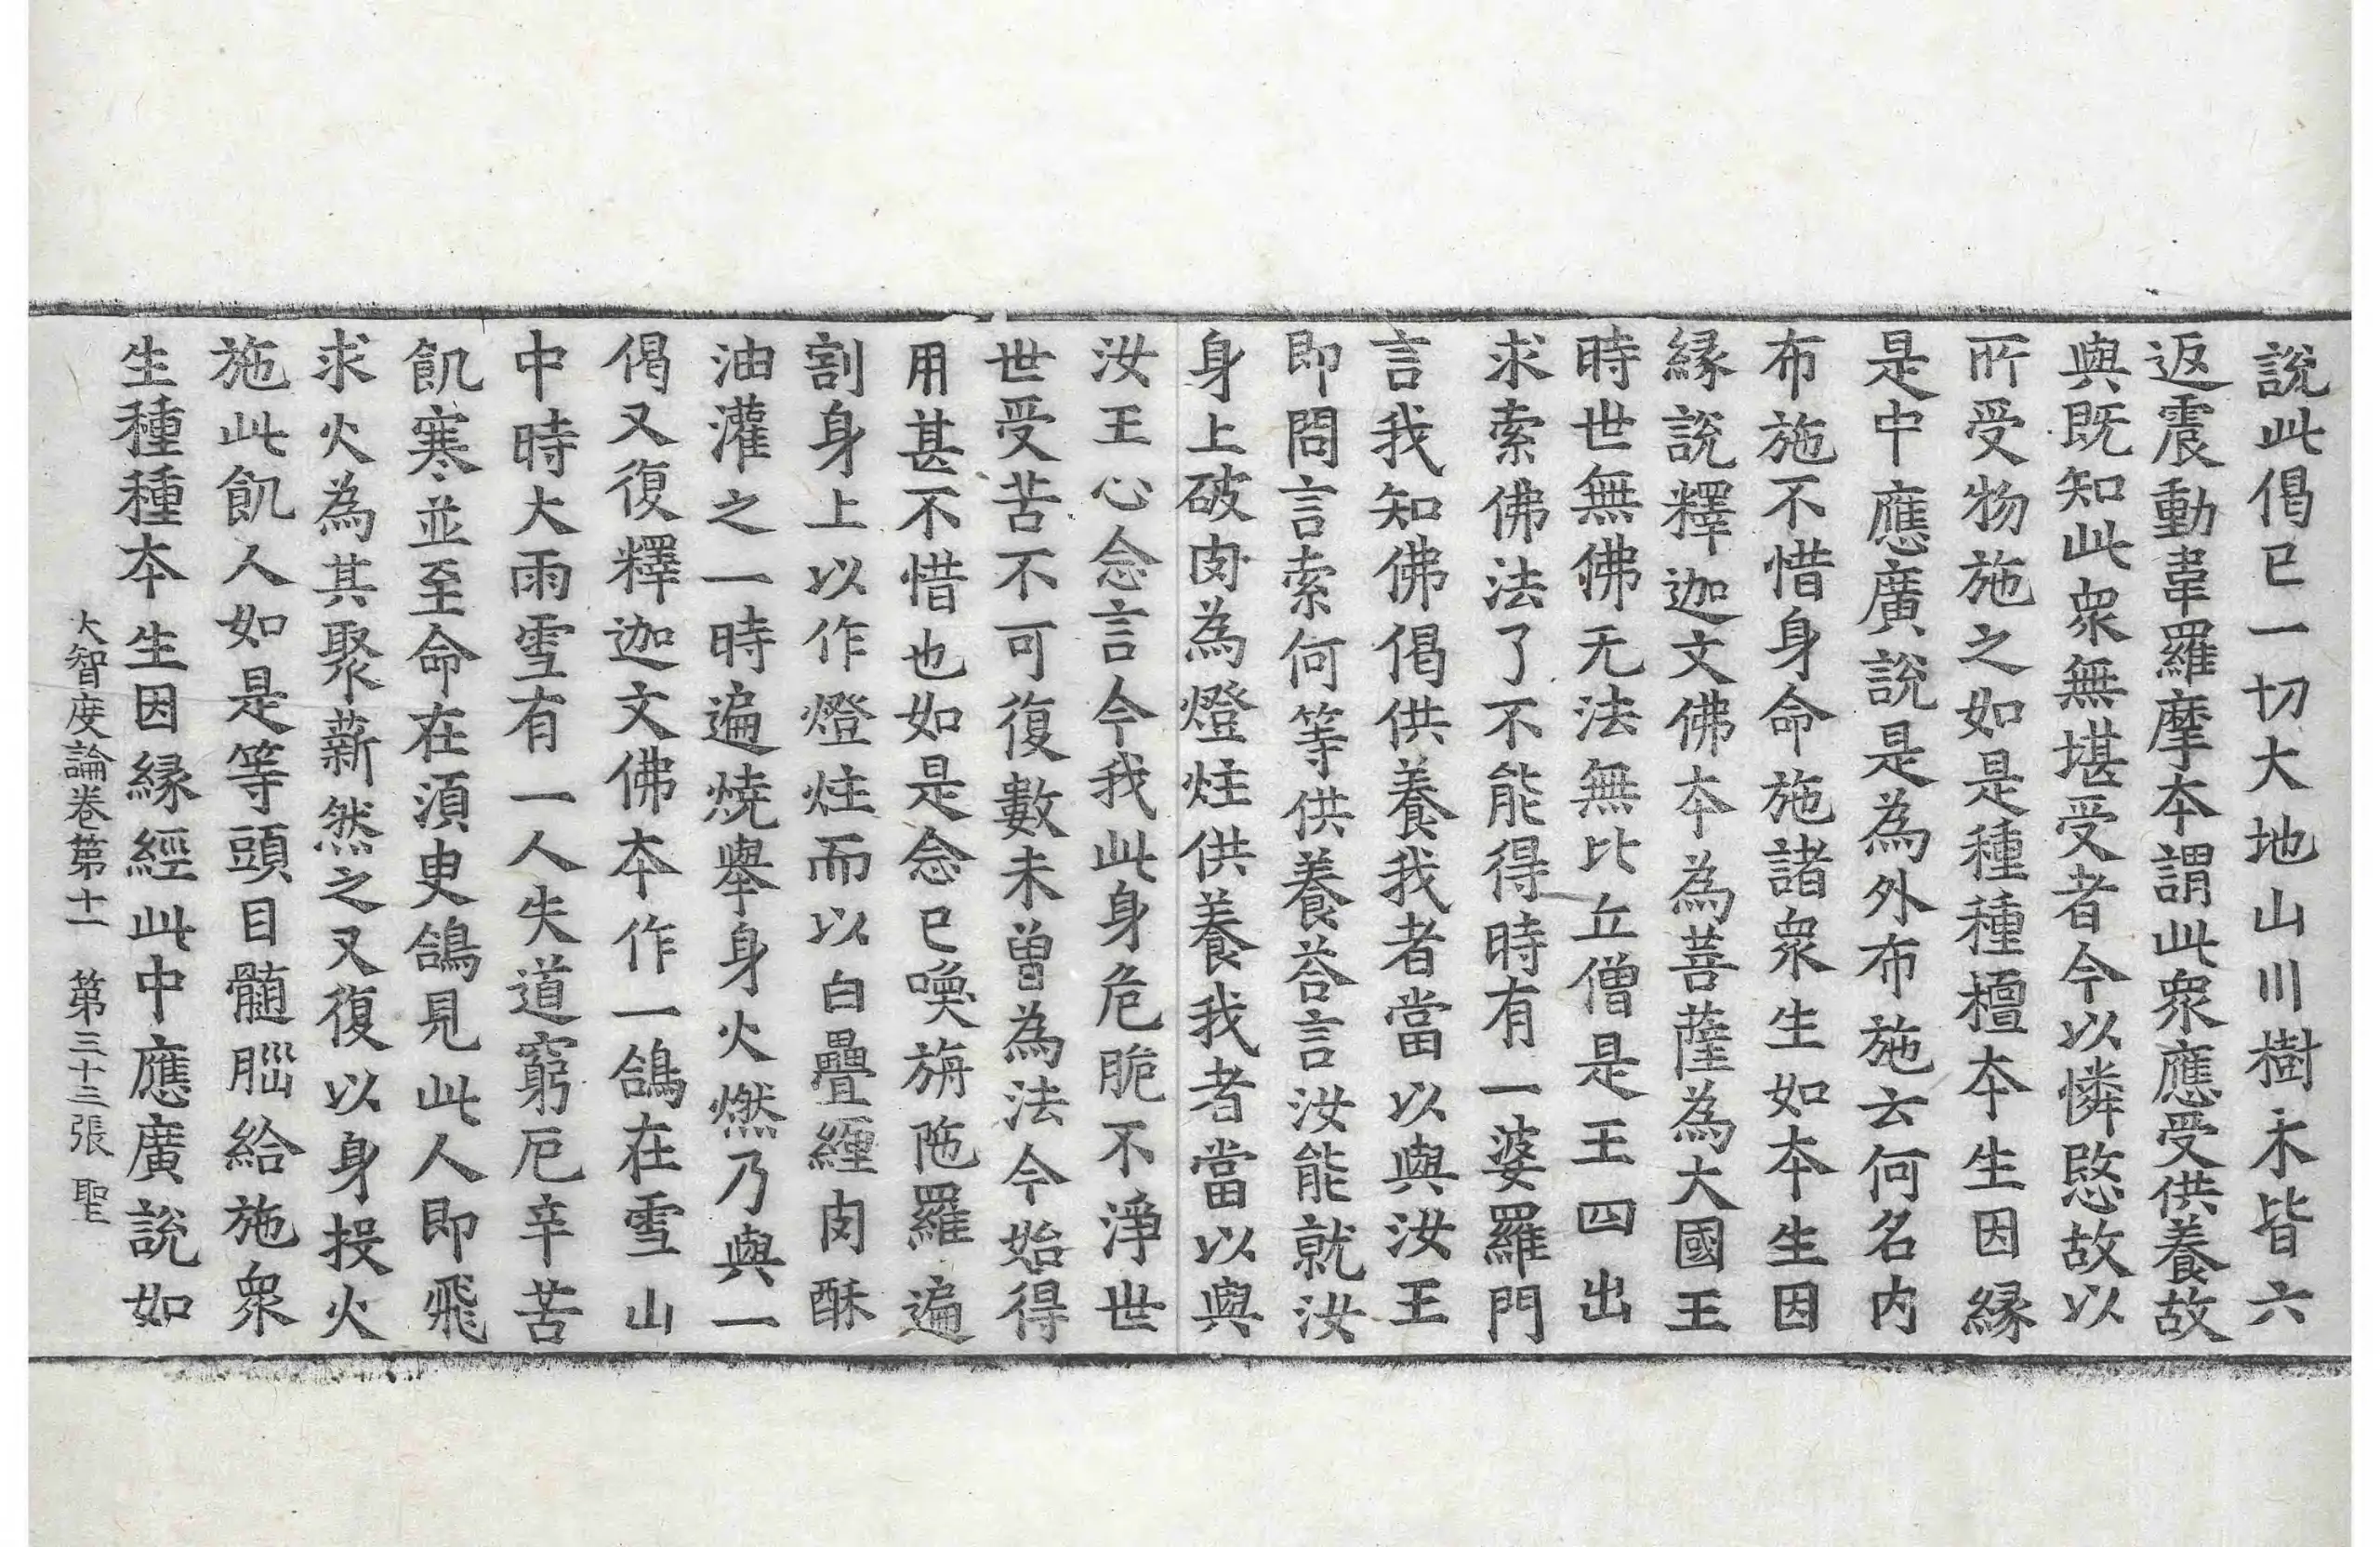 說此偈已一切大地山川樹木皆六
返震動韋羅摩夲謂此衆應受供養故
與既知此衆無堪受者今以憐愍故以
所受物施之如是種種檀夲生因緣
是中應廣說是為外布施云何名内
布施不惜身命施諸衆生如夲生因
緣說釋迦文佛夲為菩薩為大國王
時世無佛无法無比丘僧是王四出
求索佛法了不能得時有一婆羅門
言我知佛偈供養我者當以與汝王
即問言索何等供養荅言汝能就汝
身上破肉為燈炷供養我者當以與
汝王心念言今我此身危脆不淨世
世受苦不可復數未曽為法今始得
用甚不惜也如是念已喚旃陁羅遍
割身上以作燈炷而以白疊纏肉酥
油灌之一時遍燒舉身火燃乃與一
偈又復釋迦文佛夲作一鴿在雪山
中時大雨雪有一人失道窮厄辛苦
飢寒並至命在湏臾鴿見此人即飛
求火為其聚薪然之又復以身投火
施此飢人如是等頭目髓腦給施衆
生種種夲生因緣經此中應廣說如
大智度論卷第十一　第三十三張　聖